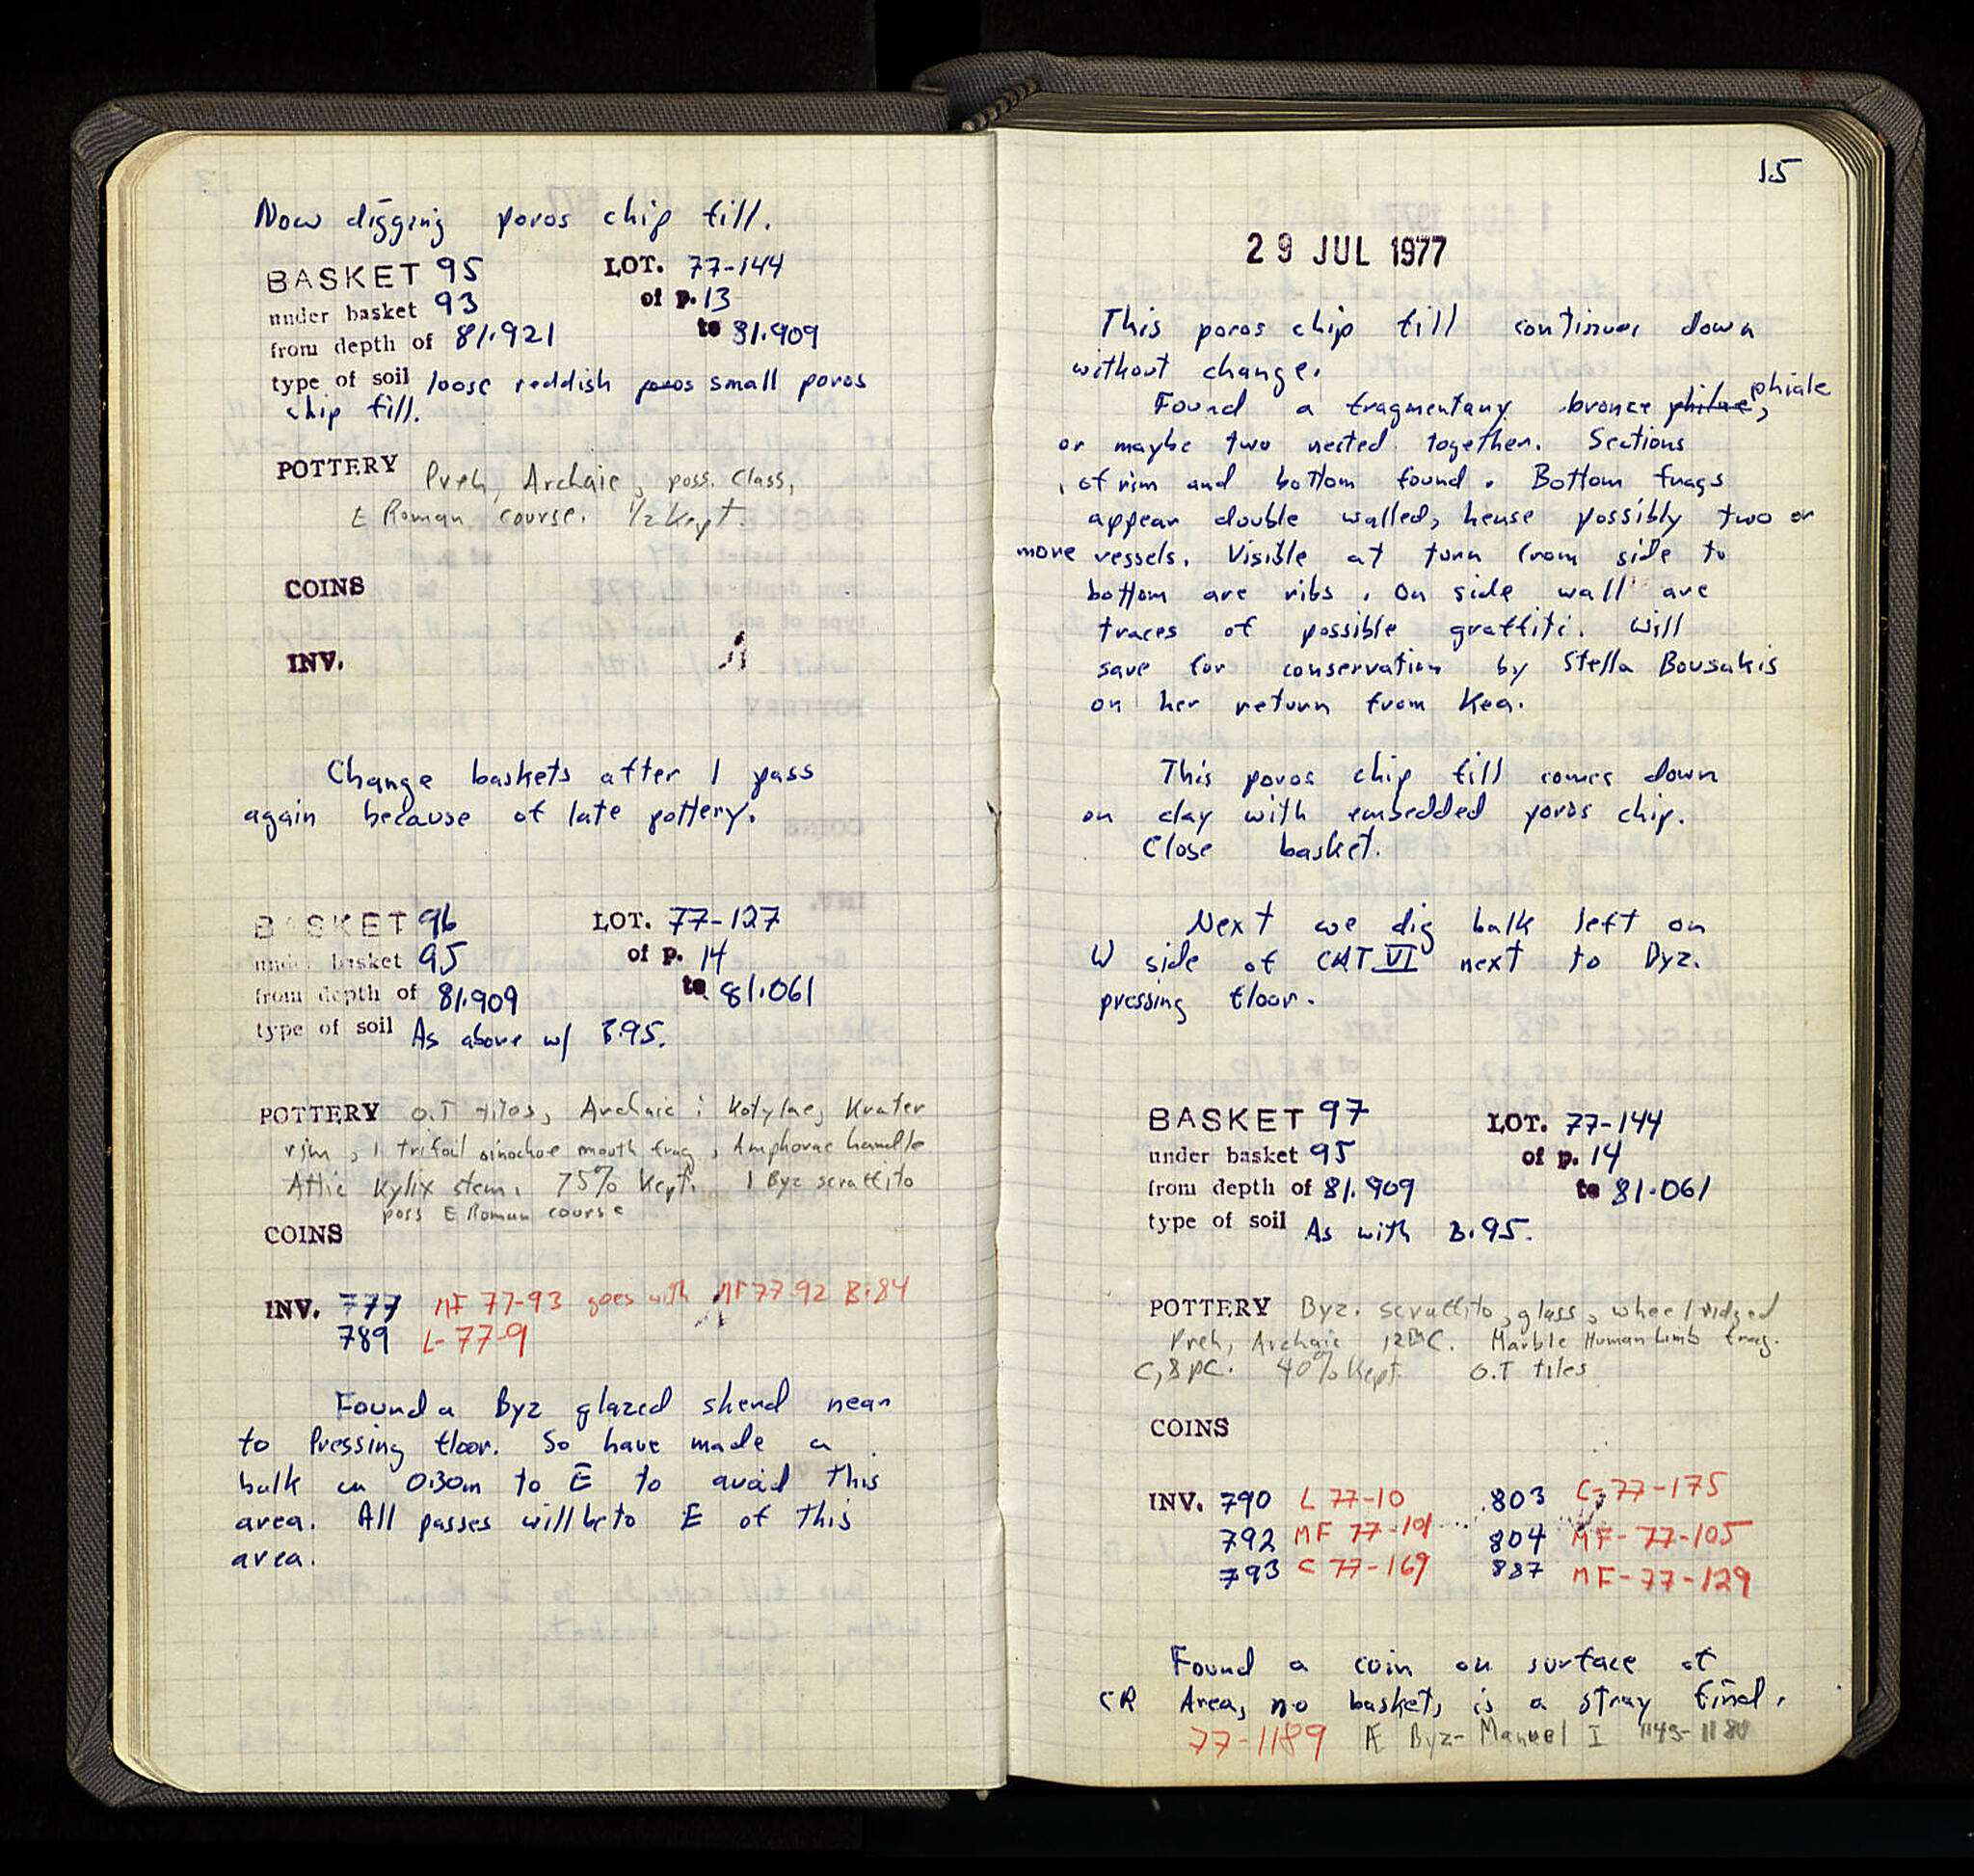 Now digging poros chip fill.
BASKET 95 LOT. 77-144
under basket 93 of p. 13
from depth of 81.921 to 81.909
type of soil loose reddish poros small poros
chip fill.
POTTERY Preh, Archaic, poss. Class,
E Roman course. 1/2 Kept.
COINS
INV.
Change baskets after 1 pass
again because of late pottery.
BASKET 96 LOT. 77-127
under basket 95 of p. 14
from depth of 81.909 to 81.061
type of soil As above w/ B.95.
POTTERY O.T tiles, Archaic : Kotylae, Krater
rim, 1 trifoil oinochoe mouth frag, Amphorae handle
Attic Kylix stem. 75% Kept. 1 Byz scraffito
poss E Roman course
COINS
INV. 777 MF 77-93 goes with MF 77-92 B.84
789 L-77-9
Found a Byz glazed sherd near
to Pressing floor. So have made a
balk ca 0.30m to E to avoid this
area. All passes will be to E of this
area.
15
29 JUL 1977
This poros chip fill continues down
without change.
Found a fragmentary bronze philae, phiale
or maybe two nected together. Sections
of rim and bottom found. Bottom frags
appear double walled, hense possibly two or
more vessels. Visible at turn from side to
bottom are ribs. On side wall are
traces of possible graffiti. Will
save for conservation by Stella Bousakis
on her return from Kea.
This poros chip fill comes down
on clay with embedded poros chip.
Close basket.
Next we dig balk left on
W side of CHT VI next to Byz.
pressing floor.
BASKET 97 LOT. 77-144
under basket 95 of p. 14
from depth of 81.909 to 81.061
type of soil As with B.95.
POTTERY Byz. scraffito, glass, wheel ridged
Preh, Archaic 12th C. Marble Human Limb frag.
C, 8 pc. 40% Kept. O.T tiles
COINS
INV. 790 L 77-10 803 C-77-175
792 MF 77-101 804 MF-77-105
793 C 77-169 887 MF-77-129
Found a coin on surface at
CR Area, no basket, is a stray find.
77-1189 Æ Byz- Manuel I 1143-1180